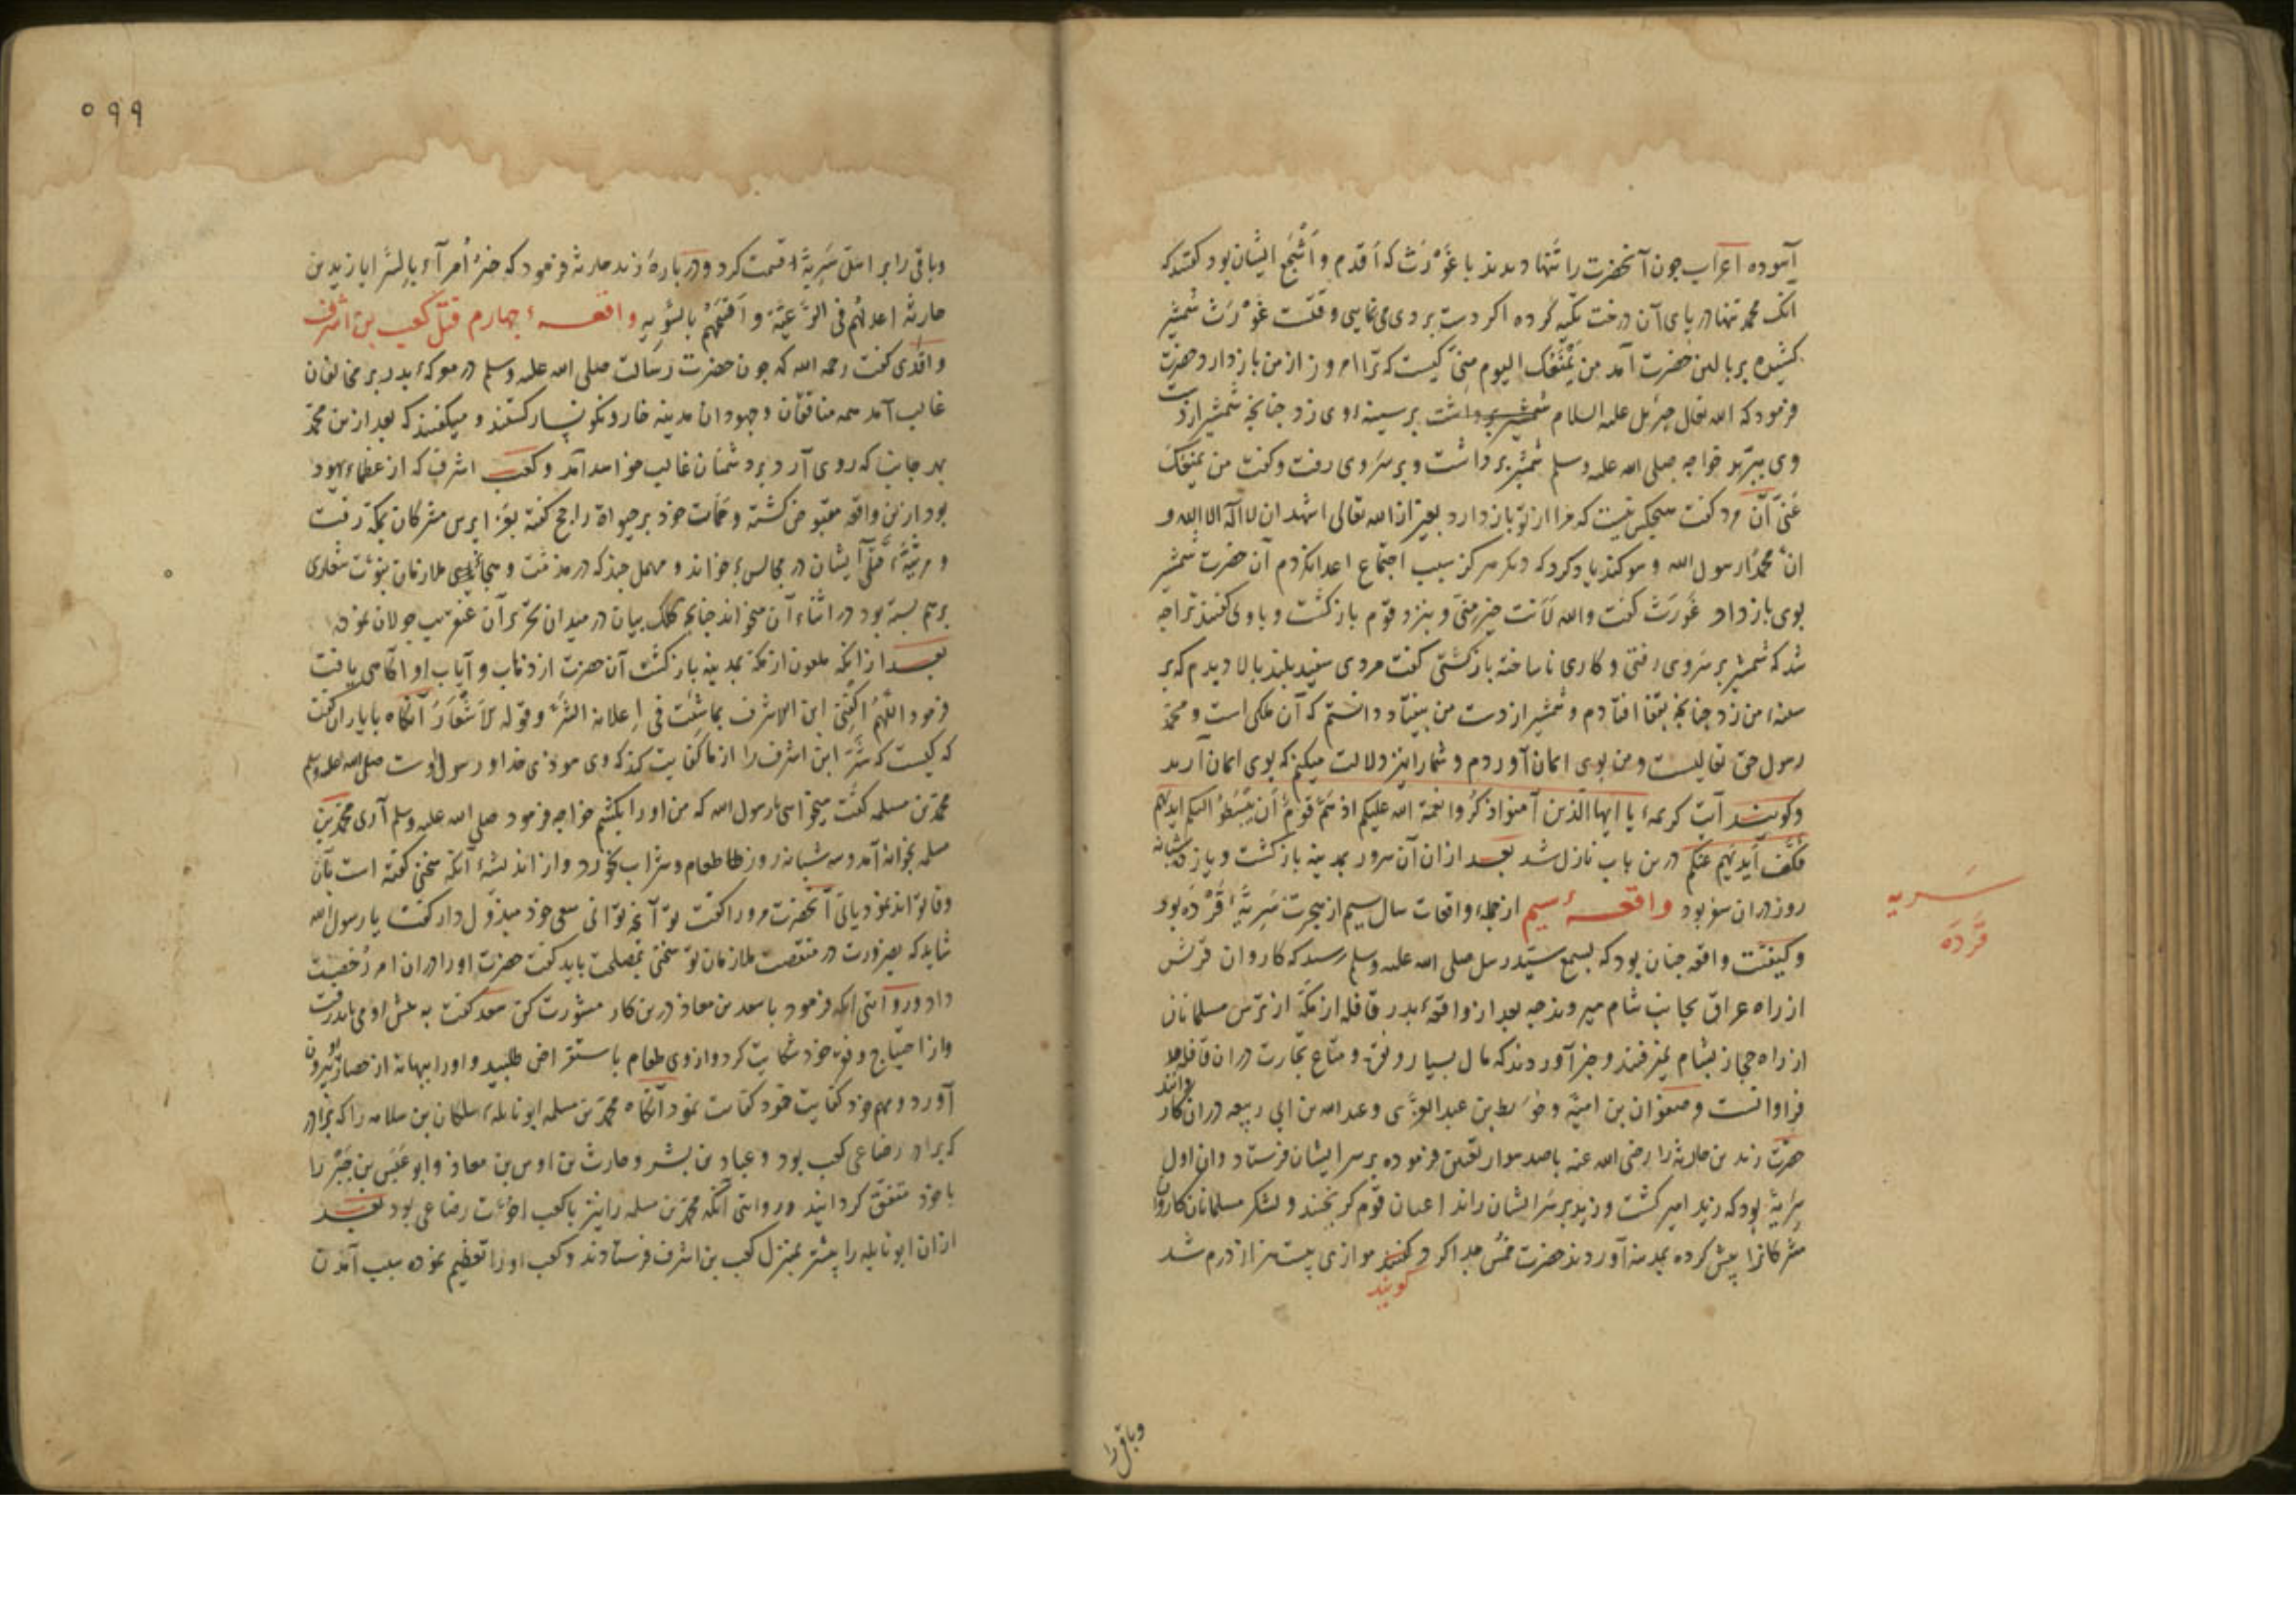 آسوده اعراب چون آنحضرت را تنها دیدند با غَوْرَث که اَقدم و اَشْجَع ایشان بود گفتند که
انک محمد تنها در پای آن درخت تکیه کرده اکر دست بردی می نمایی وقتست غَوْرَث شمشیر
کشیده بر بالین حضرت آمد من یَمْنَعُک الیوم مِنّی کیست که ترا امروز از من باز دارد حضرت
فرمود که الله تعالی جبرئیل علیه السلام بر سینهٔ وی زد چنانچه شمشیر از دست
وی خواجه صلی الله علیه وسلم شمشیر برداشت و بر سر وی رفت و گفت من یمنعک
عنّی آن مرد گفت هیچکس نیست که مرا از تو باز دارد بغیر از الله تعالی اشهد ان لا اله الا الله و
انّ محمداً رسول الله و سوکند یاد کرد که دیکر هرکز سبب اجتماع اعدا نکردم آن حضرت شمشیر
بوی باز داد غَورَث گفت والله لَاَنت خیر مِنّی و بنزد قوم باز کشت و با وی گفتند ترا چه
شد که شمشیر بر سر وی رفتی و کاری ناساخته باز کشتی گفت مردی سفید بلند بالا دیدم که بر
سینهٔ من زد چنانچه بقفا افتادم و شمشیر از دست من بیفتاد دانستم که آن ملکی است و محمّد
رسول حق تعالیست و من بوی ایمان آوردم و شما را نیز دلالت میکنم که بوی ایمان آرید
و کویند آیت کریمهٔ یا ایها الّذین آمنوا اذکُروا نعمة الله علیکم اذ هَمَّ قَومٌ اَن یَبْسُطُوا الیکم ایدیَهم
فَکَفَّ اَیدِیَهم عنکم درین باب نازل شد بعد ازان آن سرور بمدینه باز کشت و یازده شبانه
روز دران سفر بود واقعهٔ سیم از جملهٔ واقعات سال سیم از هجرت سَرِیّهٔ قَرْدَه بود
و کیفیّت واقعه چنان بود که بسمع سیّد رسل صلی الله علیه وسلم رسید که کاروان قریش
از راه عراق بجانب شام میروند چه بعد از واقعهٔ بدر قافله از مکّه از ترس مسلمانان
از راه حجاز بشام نمیرفتند و خبر آوردند که مال بسیار و نقره و متاع تجارت دران قافله
فراوانست و صفوان بن امیّه و حُوَیطب بن عبد العزّی و عبد الله بن ابی ربیعه دران کاروانند
حضرت زید بن حارثه را رضی الله عنه با صد سوار تعیین فرموده بر سر ایشان فرستاد و آن اول
سَرِیّهٔ بود که زید امیر کشت و زید بر سر ایشان راند اعیان قوم کریختند و لشکر مسلمانان کاروان
مشرکانرا پیش کرده بمدینه آوردند حضرت خُمس جدا کرد کویند موازی بیست هزار درم شد
کویند
سریه
قَرَدَه
وباقی را
۵۹۹
وباقی را بر اهل سَرِیّه قسمت کرد و در بارهٔ زید حارثه فرمود که خیرُ اُمراء السّرایا زید بن
حارثه اعدلُهم فی الرّعیّة و اَقسَمُهُم بالسّویه واقعهٔ چهارم قتل کعب بن اشرف
واقدی گفت رحمه الله که چون حضرت رسالت صلی الله علیه وسلم در معرکهٔ بدر بر مخالفان
غالب آمد همه منافقان و جهودان مدینه خار و نکونسار کشتند و میگفتند که بعد ازین محمّد
بهر جانب که روی آرد بر دشمنان غالب خواهد آمد و کعب اشرف که از عظماء یهود
بود ازین واقعه مقبوض کشته و ممات خود بر حیوة راجح گفته بپُرسش مشرکان بمکّه رفت
و مرثیّهٔ قتلی ایشان در مجالس خواند و مهمل چند که در مذمّت و ملازمان نبوّت شعاری
برهم بسته بود در اثناء آن میخواند چنانچه کلک بیان در میدان تحریر آن عنقریب جولان نموده
بعد از آنکه ملعون از مکّه بمدینه باز کشت آن حضرت از ذهاب و آیاب او آکاهی یافت
فرمود اللّهُمّ اکفِنی ابن الاشرف بما شِئْت فی اِعلانه الشّرّ و قوله الاَشْعَارَ آنکاه با یاران گفت
که کیست که شَرّ ابن اشرف را از ما کفایت کند که وی موذی خدا و رسول اوست صلی الله علیه وسلم
محمّد بن مسلمه گفت میخواهی یا رسول الله که من او را بکشم خواجه فرمود صلی الله علیه وسلم آری محمّد بن
مسلمه بخانه آمد و سه شبانه روز طعام و شراب نخورد و از اندیشهٔ آنکه سخنی گفته است بآن
وفا تواند نمود یا نی آنحضرت مر ورا گفت تو آنچه توانی سعی خود مبذول دار گفت یا رسول الله
شاید که بضرورت در منقصت ملازمان تو سخنی بمصلحت باید گفت حضرت او را دران امر رُخصت
داد و روایتی آنکه فرمود با سعد بن معاذ درین کار مشورت کن سعد گفت به پیش او می باید رفت
و از احتیاج و فقر خود شکایت کرد و از وی طعام باستقراض طلبید و او را ببهانه از حصار بیرون
آورد و مهم خود کفایت نمود آنکاه محمّد بن مسلمه ابو نایله سلکان بن سلامه را که برادر
که برادر رضاعی کعب بود و عباد بن بشر و حارث بن اوس بن معاذ و ابو عَبَس بن جَبْر را
با خود متفق کردانید و روایتی آنکه محمّد بن مسلمه را نیز با کعب اخوّت رضاعی بود بعد
ازان ابو نایله را پیشتر بمنزل کعب بن اشرف فرستادند و کعب او را تعظیم نموده سبب آمدن